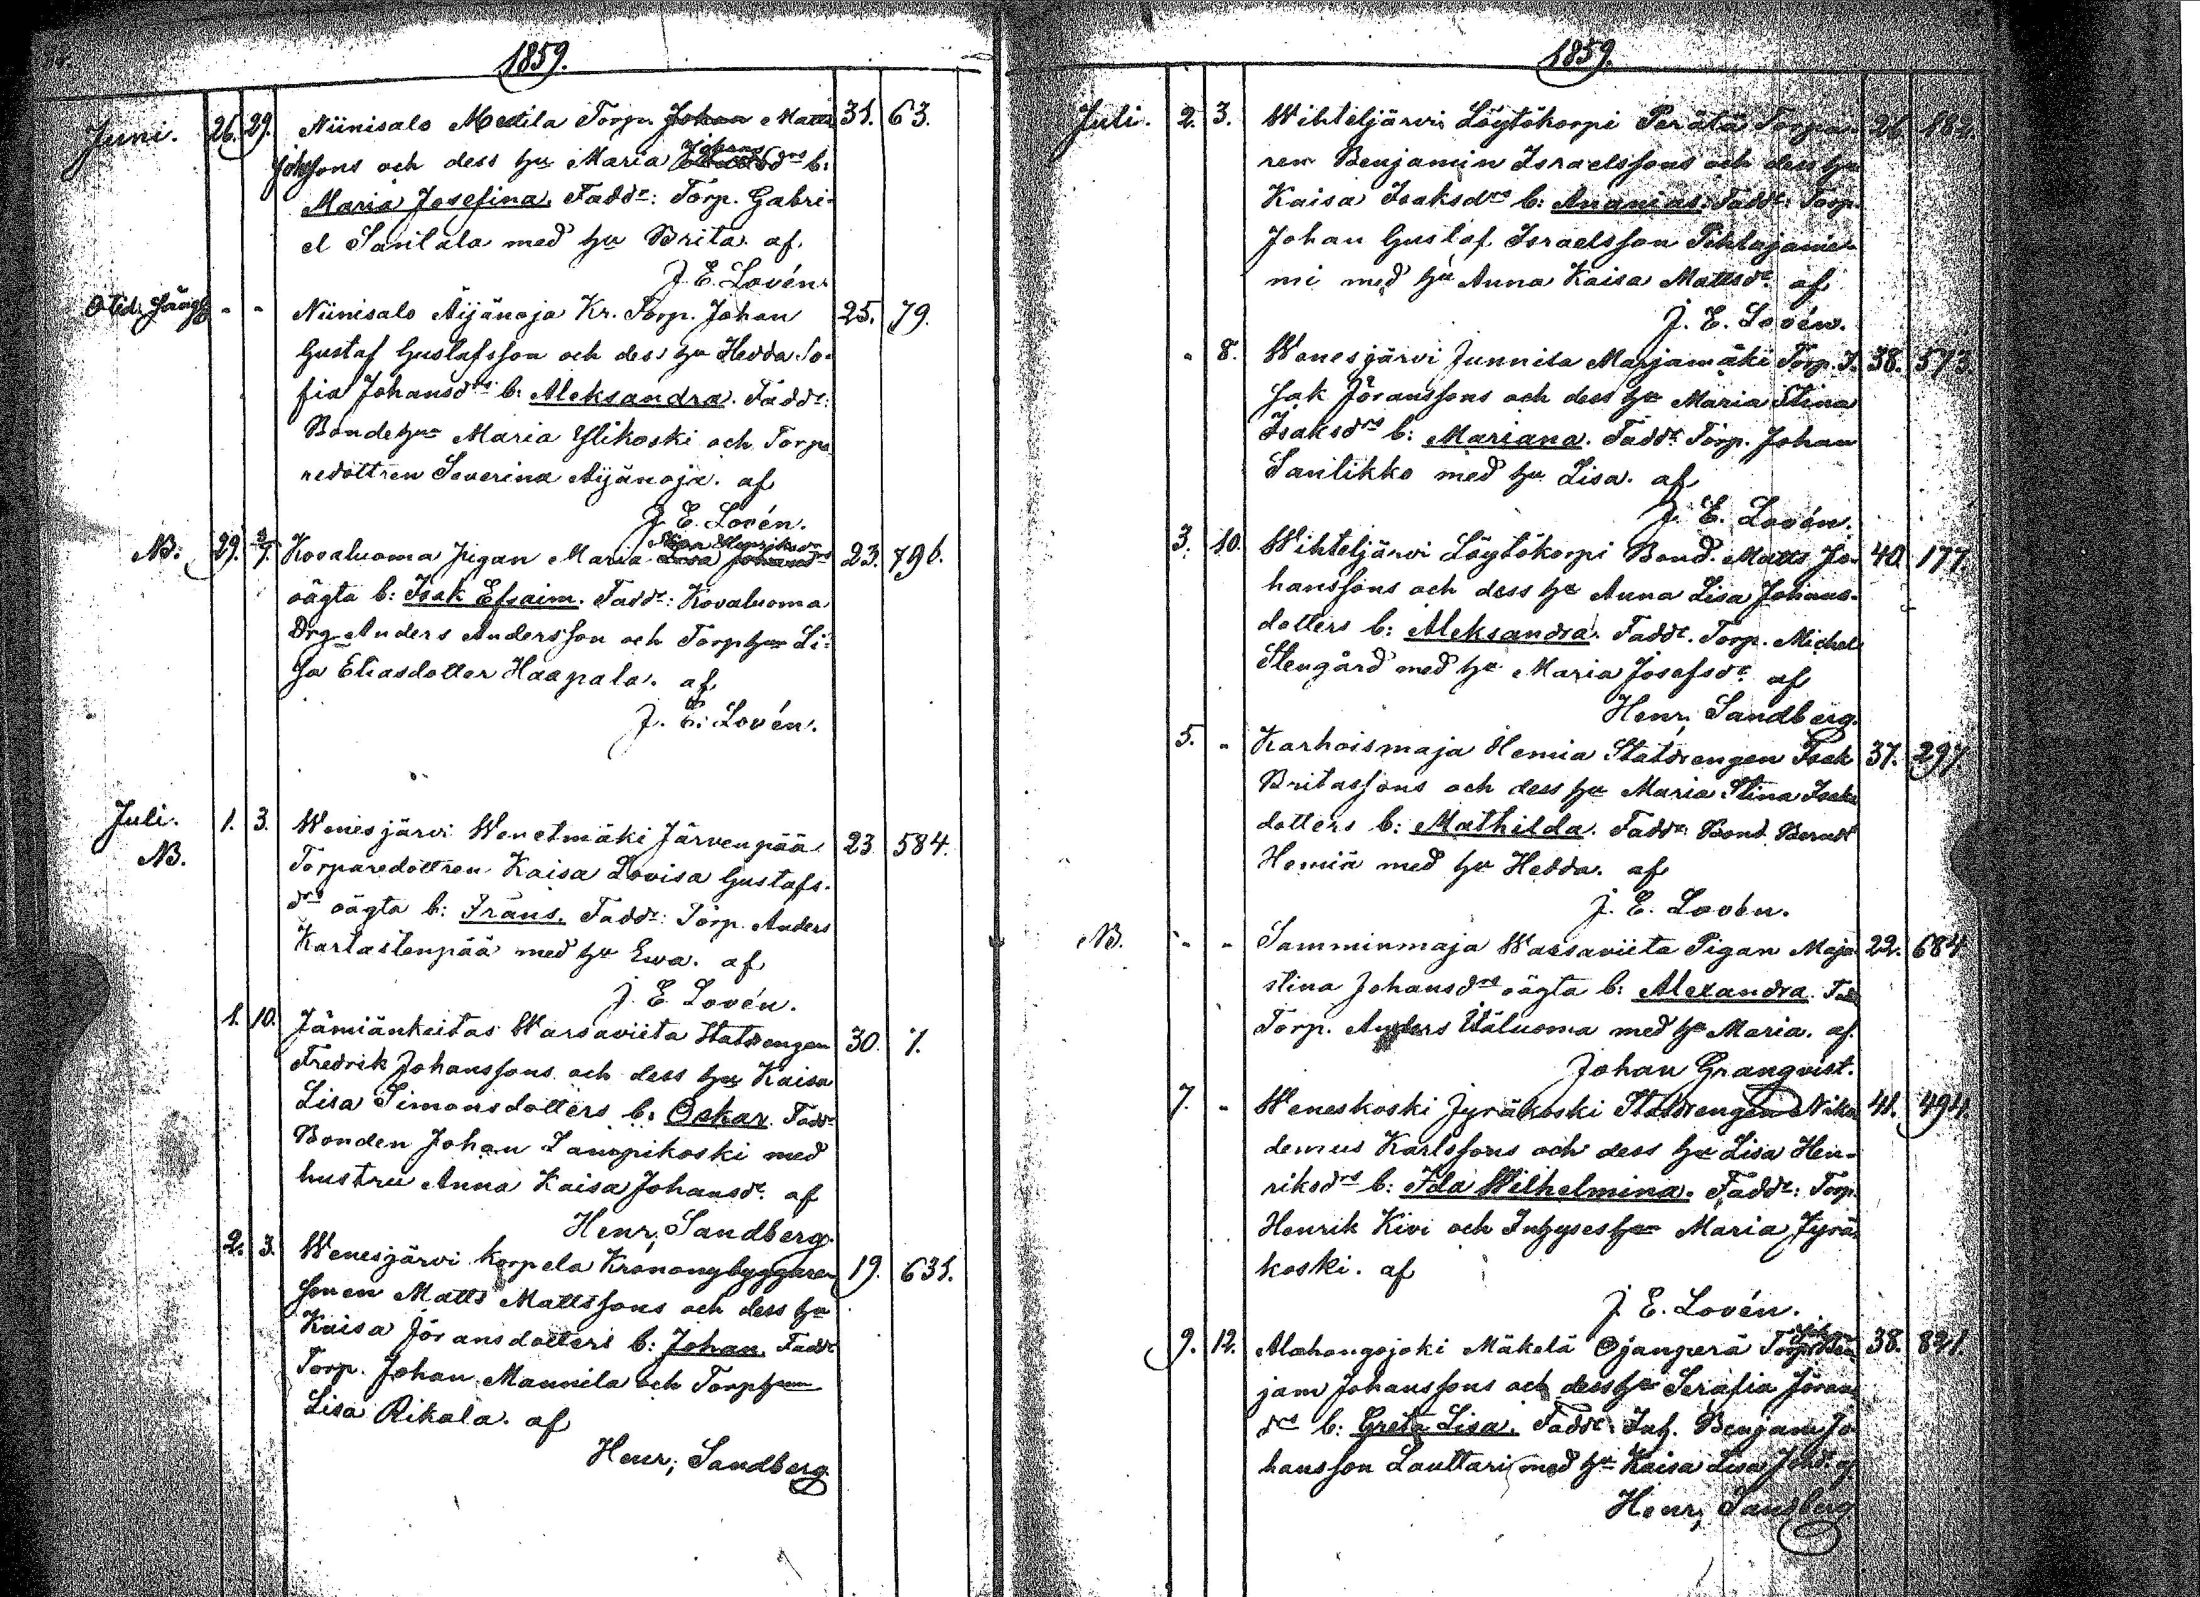 1859.
Juni. 26. 29. Niinisalo Mettila Torp. Johan Matts 31. 63.
Johssons och dess hu Maria Johans drs b:
Maria Josefina. Faddr: Torp. Gabri-
el Santala med hu Brita. af.
J. E. Lovén.
- - Niinisalo Äijänoja Kr. Torp. Johan 25. 79.
Gustaf Gustafsson och dess hu Hedda So-
fia Johansdrs b: Aleksandra. Faddr:
Bondehun Maria Ylikoski och Torpa
redottren Severina Äijänoja. af
J. E. Lovén.
NB. 29. 3/7. Kovaluoma Pigan Maria Stina Henriksdrs Lisa Johansdrs 23. 796.
oägta b: Isak Efraim. Faddr: Kovaluoma
Drg Anders Andersson och Torphun Li-
sa Eliasdotter Haapala. af
J. E. Lovén.
Juli. 1. 3. Wenesjärvi Wenetmäki Järvenpää 23 584.
NB. Torparedottren Kaisa Lovisa Gustafs-
drs oägta b: Frans. Faddr: Torp. Anders
Kartastenpää med hu Ewa. af
J. E. Lovén.
1. 10. Jämiänkeitas Warsaviita Statdrengen 30. 7.
Fredrik Johanssons och dess hu Kaisa
Lisa Simonsdotters b: Oskar. Faddr
Bonden Johan Lanopikoski med
hustru Anna Kaisa Johansdr. af
Henr. Sandberg.
2. 3. Wenesjärvi Korpela Krononybyggaren 19. 631.
sonen Matts Mattssons och dess hu
Kaisa Jöransdotters b: Johan. Faddr
Torp. Johan Mannila och Torphun
Lisa Rikala. af
Henr. Sandberg
1859.
Juli. 2. 3. Wihteljärvi Löytökorpi Perätä Torpa- 26. 182.
ren Benjamin Israelssons och dess hu
Kaisa Isaksdrs b: Ananias. Faddr: Torp.
Johan Gustaf Israelsson Pihlajanie-
mi med hu Anna Kaisa Mattsdr. af
J. E. Lovén.
- 8. Wenesjärvi Junnila Marjamäki Torp. I- 38. 573.
sak Jöranssons och dess hu Maria Stina
Isaksdrs b: Mariana. Faddr Torp. Johan
Santikko med hu Lisa. af
J. E. Lovén.
3. 10. Wihteljärvi Löytökorpi Bond. Matts Jo- 40. 177.
hanssons och dess hu Anna Lisa Johans-
dotters b: Aleksandra. Faddr. Torp. Michel
Stengård med hu Maria Josefsdr. af
Henr. Sandberg.
5. - Karhoismaja Hemiä Statdrengen Isak 37. 297.
Britassons och dess hu Maria Stina Isaks
dotters b: Mathilda. Faddr: Bond. Berndt
Hemiä med hu Hedda. af
J. E. Lovén.
NB. - - Samminmaja Warsaviita Pigan Maja 22. 684.
stina Johansdrs oägta b: Alexandra. Fadd
Torp. Anders Wäluoma med hu Maria. af.
Johan Granqvist.
7. - Weneskoski Jyräkoski Statdrengen Niko 41. 494.
demus Karlssons och dess hu Lisa Hen-
riksdrs b: Ida Wilhelmina. Faddr: Torp.
Henrik Kivi och Inhyseshun Maria Jyrä-
koski. af
J. E. Lovén.
9. 12. Alahongojoki Mäkelä Ojanperä Torp Ben- 38. 821.
jam Johanssons och dess hu Serafia Jörans
drs b: Greta Lisa. Faddr: Inh. Benjam Jo
hansson Lauttari med hu Kaisa Lisa Johdr. af
Henr. Sandberg